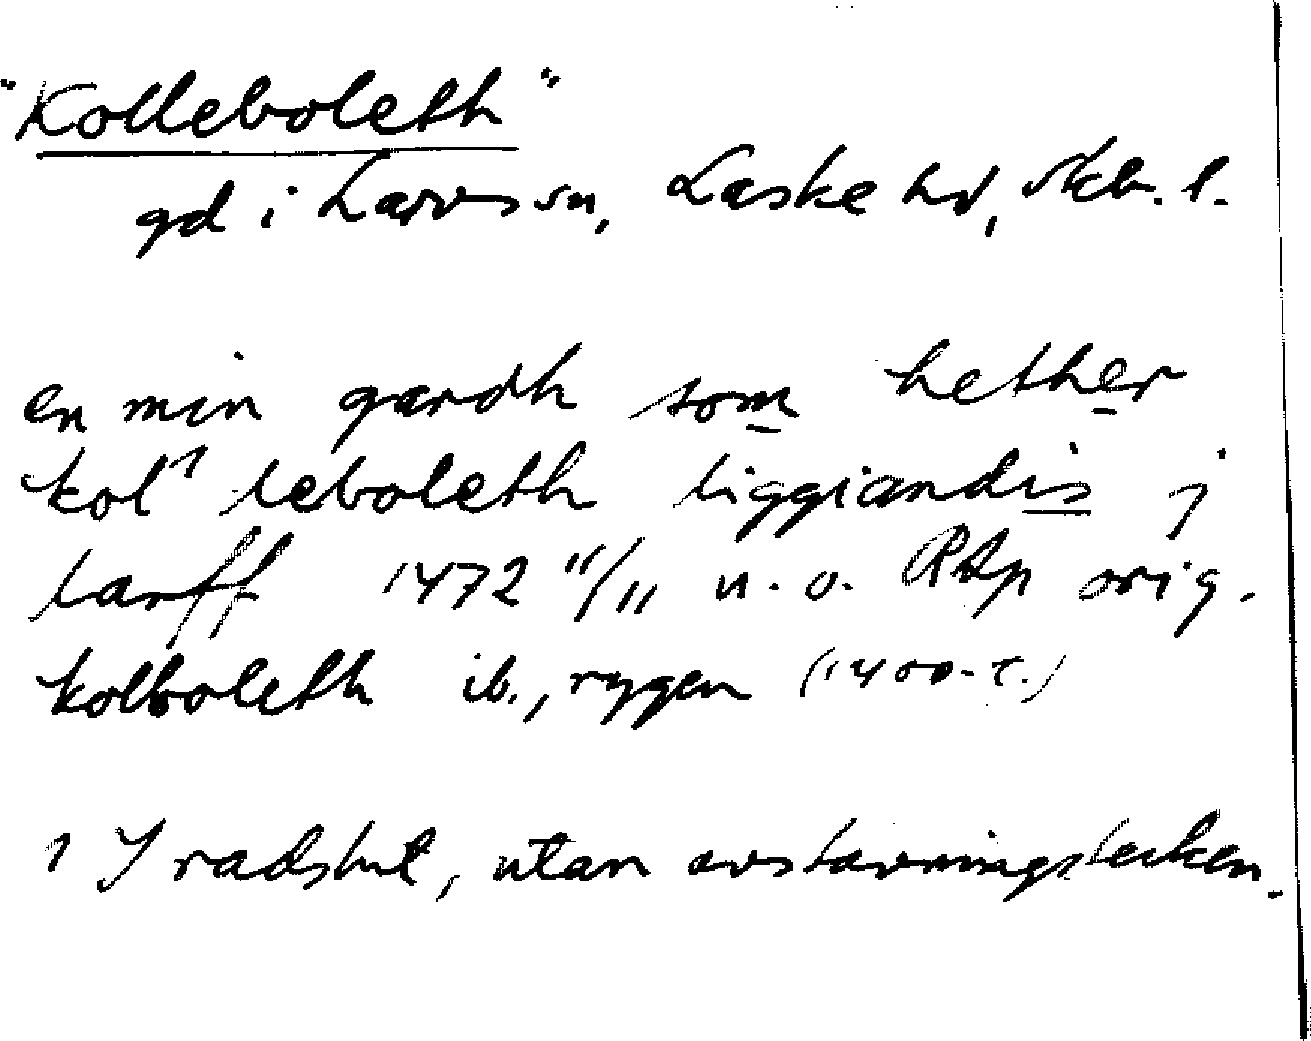 "Kolleboleth"
gd i Larvs sn, Laske hd, Skb. l.
en min gardh som hether
kol¹ leboleth liggiandis j
larff 1472 11/11 u. o. RAp orig.
kolboleth ib., ryggen (1400-t.)
1 I radslut, utan avstavningstecken.